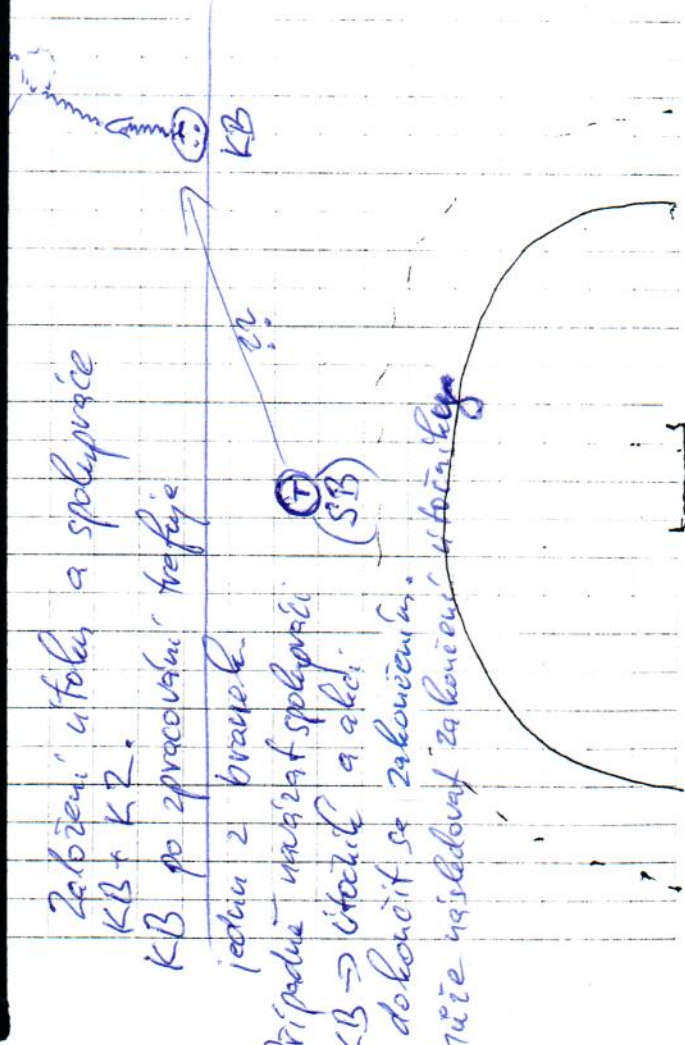 Založení útoku a spolupráce
KB + KZ.
KB po zpracování trefuje
jednu z branek.
Případně navázat spolupráci
KB → útočník a akci
dokončit se zakončením.
může následovat zakončení útočníkem
??
KB
T
(SB)